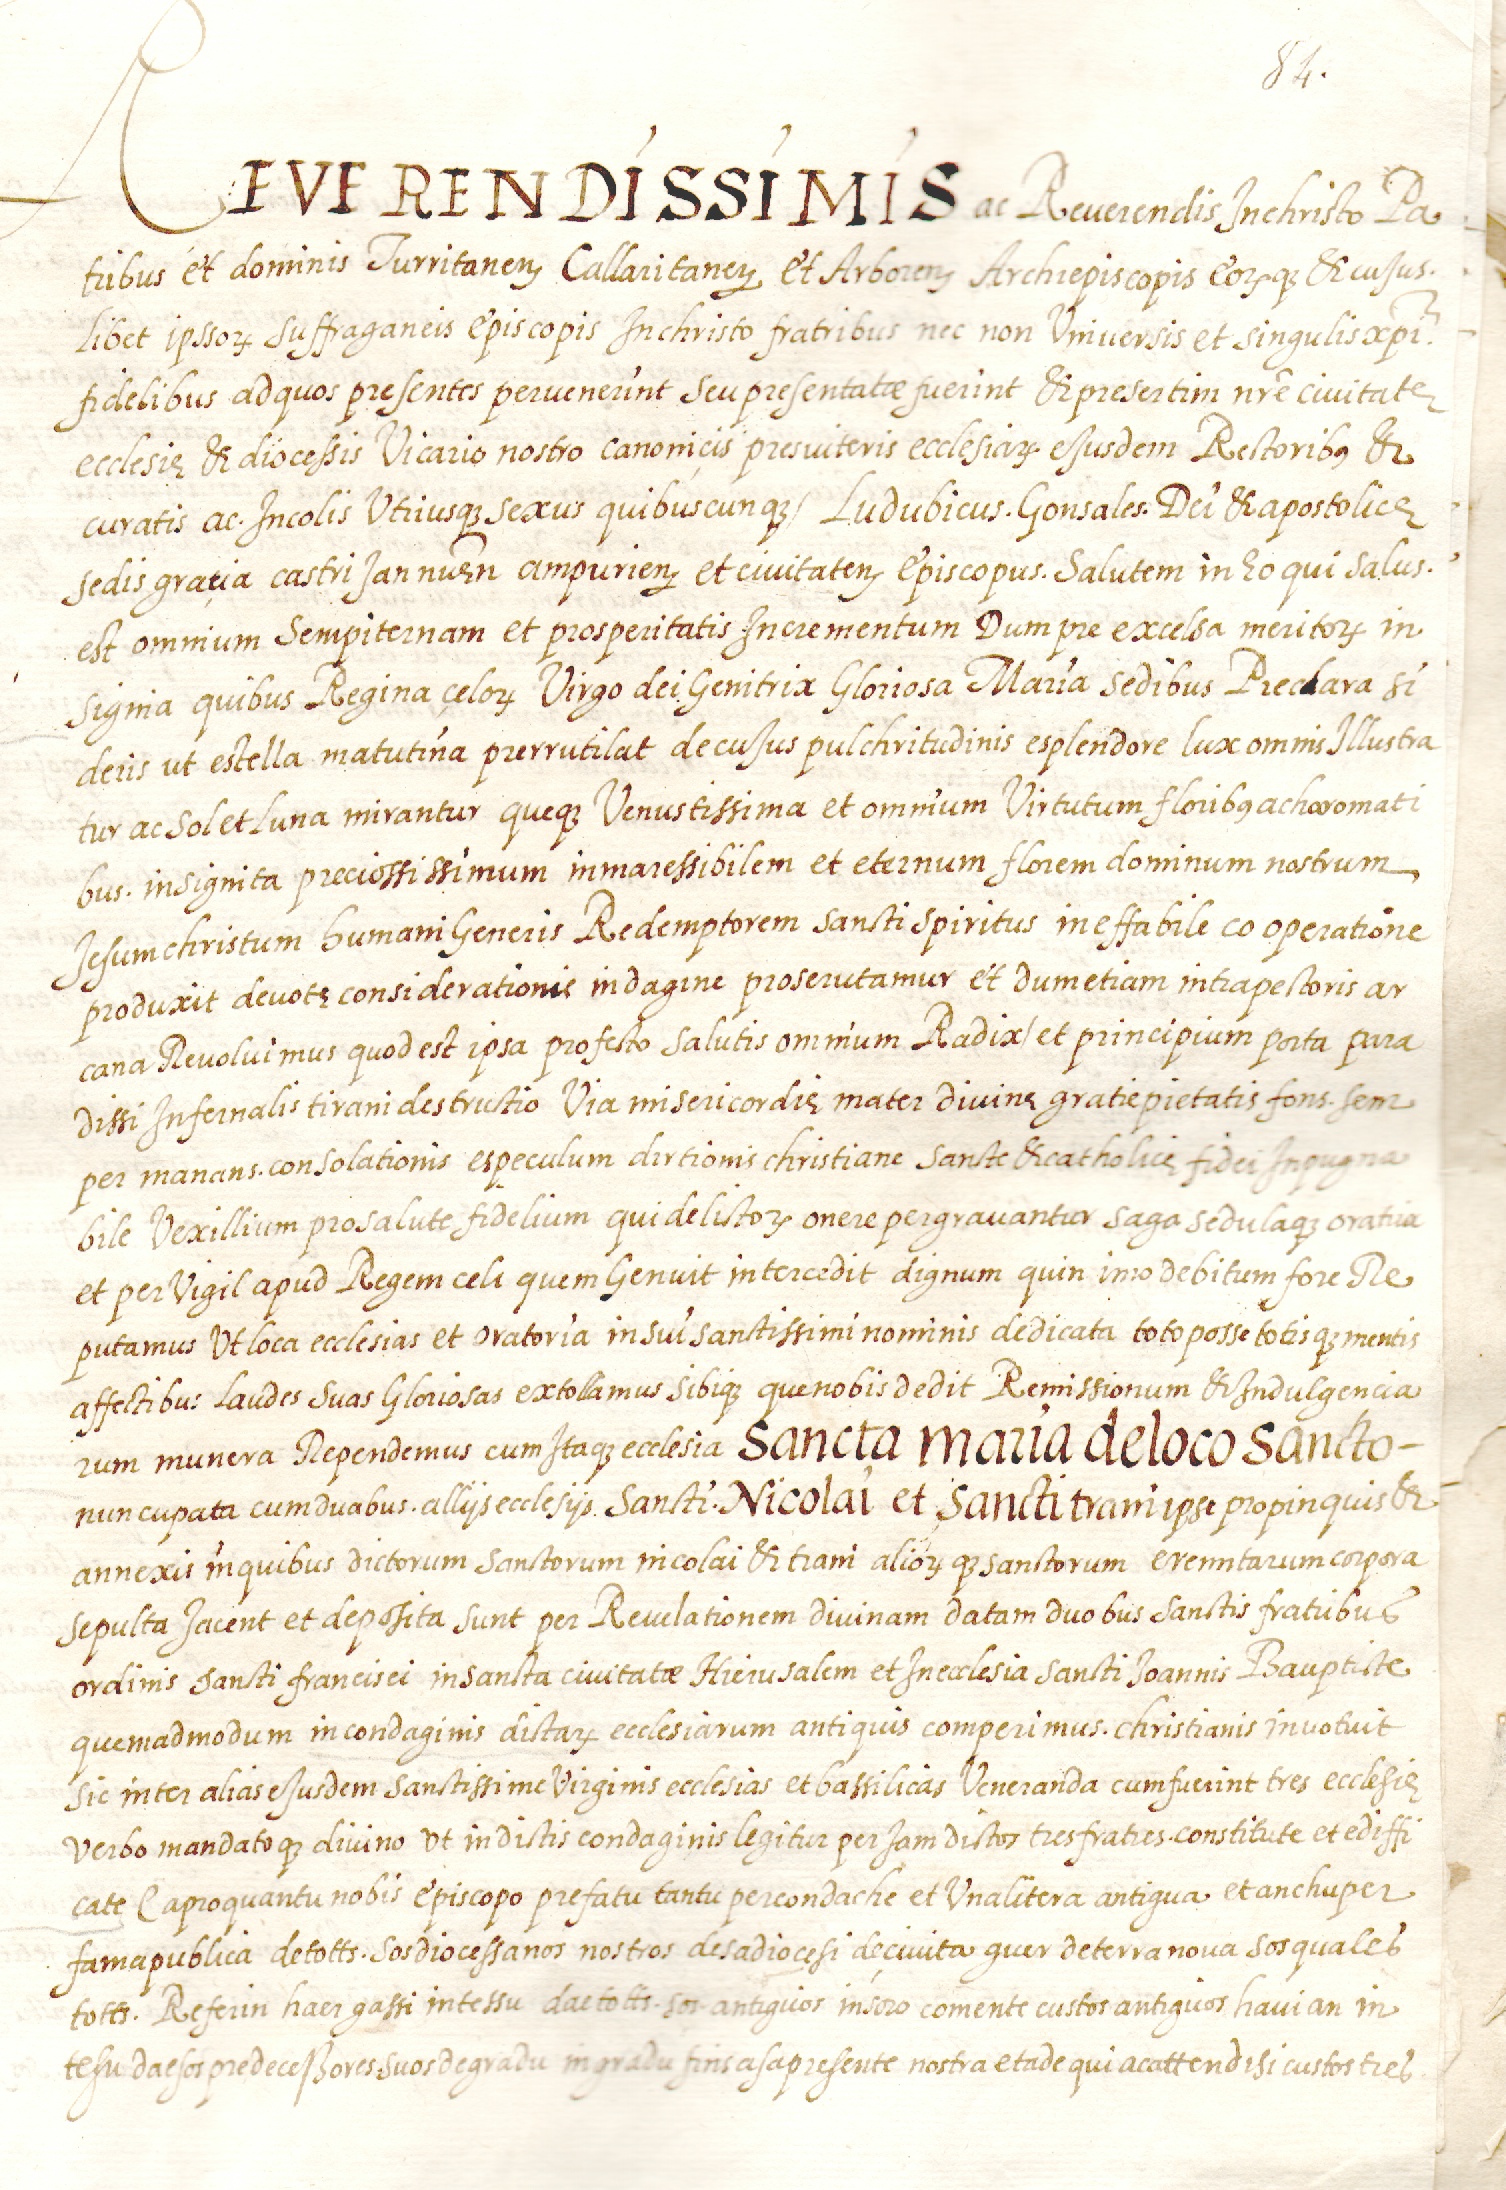 84.
REVERENDISSIMIS ac Reuerendis Inchristo Pa
tribus et dominis Turritaneñ Callaritaneñ et Arboreñ Archiepiscopis eorq; & cujus.
libet ipssor suffraganeis episcopis Inchristo fratribus nec non Vniuersis et singulis xpi.
fidelibus adquos presentes peruenerint seu presentatæ fuerint & presertim nr̃e ciuitateñ
ecclesię & diocessis Vicario nostro canonicis presuiteris ecclesiar ejusdem Rectorib9 &
curatis ac. Incolis Vtriusq; sexus quibuscunq;/ Ludubicus. Gonsales. Dei & apostolicę
sedis gratia castri Jannueñ ampurieñ et ciuitateñ episcopus. Salutem in eo qui salus.
est omnium sempiternam et prosperitatis Incrementum Dum pre excelsa meritor in
signia quibus Regina çelor Virgo dei Genitrix Gloriosa Maria sedibus Preclara si
deris ut estella matutina prerrutilat de cujus pulchritudinis esplendore lux omnis Illustra
tur ac Sol et Luna mirantur queq; Venustissima et omnium Virtutum florib9 ac haromati
bus. insignita preciossissimum inmaressibilem et eternum florem dominum nostrum
Jesum christum humani Generis Redemptorem sancti spiritus ineffabile co operatione
produxit deuotę considerationis indagine proscrutamur et dum etiam intrapectoris ar
cana Reuoluimus quod est ipsa profecto salutis omnium Radix/ et principium porta para
dissi Infernalis tirani destructio Via misericordię mater diuinę gratie pietatis fons. sem
per manans. consolationis especulum dirtionis christiane sancte & catholicę fidei Inpugna
bile Vexillium pro salute fidelium qui delictor onere pergrauantur saga sedulaq; oratria
et per Vigil apud Regem celi quem Genuit intercedit dignum quin imo debitum fore Re
putamus Vt loca ecclesias et oratoria in sui sanctissimi nominis dedicata toto posse totisq; mentis
affectibus Laudes suas Gloriosas extollamus sibiq; que nobis dedit Remissionum & Indulgencia
rum munera Rependemus cum Itaq; ecclesia Sancta maria de loco Sancto-
nuncupata cum duabus. allijs ecclesijs. Sancti. Nicolai et Sancti trani ipse propinquis &
annexis in quibus dictorum sanctorum nicolai & trani aliorq; sanctorum eremitarum corpora
sepulta Jacent et deposita sunt per Reuulationem diuinam datam duobus sanctis fratribus
ordinis sancti francisci in sancta ciuitatæ Hierusalem et In ecclesia sancti Joannis Bauptiste
quemadmodum in condaginis dictar ecclesiarum antiquis comperimus. christianis inuotuit
sic inter alias ejusdem sanctissime Virginis ecclesias et bassilicas Veneranda cum fuerint tres ecclesię
verbo mandatoq; diuino vt in dictis condaginis legitur per Jam dictos tres fratres. constitute et ediffi
cate (aproquantu nobis episcopo prefatu tantu per condache et Vna litera antigua et anchu per
fama publica de totts. sos diocessanos nostros de sa diocesi de ciuita guer de terra noua sos quales
totts. Referin haer gassi intessu dae totts. sos antiguos insoro comente custos antiguos hauian in
tesu dae sos predecessores suos de gradu in gradu fins a sa presente nostra etade qui acattendisi custos tres